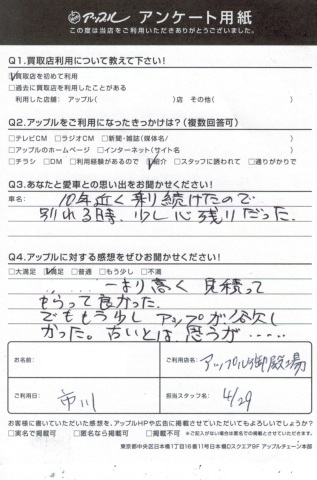 アップル アンケート用紙
この度は当店をご利用いただきありがとうございました。
Q1.買取店利用について教えて下さい!
□買取店を初めて利用
□過去に買取店を利用したことがある
利用した店舗: アップル( )店 その他( )
Q2.アップルをご利用になったきっかけは?(複数回答可)
□テレビCM □ラジオCM □新聞・雑誌(媒体名/ )
□アップルのホームページ □インターネット(サイト名 )
□チラシ □DM □利用経験があるので □紹介 □スタッフに誘われて □通りがかりで
Q3.あなたと愛車との思い出をお聞かせください!
車名:
10年近く乗り続けたので
別れる時、少し心残りだった.
Q4.アップルに対する感想をぜひお聞かせください!
□大満足 □満足 □普通 □もう少し □不満
……より高く 見積って
もらって良かった.
でももう少し アップが欲し
かった。古いとは思うが……
お名前:
ご利用店名: アップル御殿場
ご利用日: 市川
担当スタッフ名: 4/29
お客様に書いていただいた感想を、アップルHPや広告に掲載させていただいてもよろしいでしょうか?
□実名で掲載可 □匿名なら掲載可 □掲載不可 ※ご記入がない場合は匿名での掲載とさせていただきます。
東京都中央区日本橋1丁目16番11号日本橋Dスクエア9F アップルチェーン本部